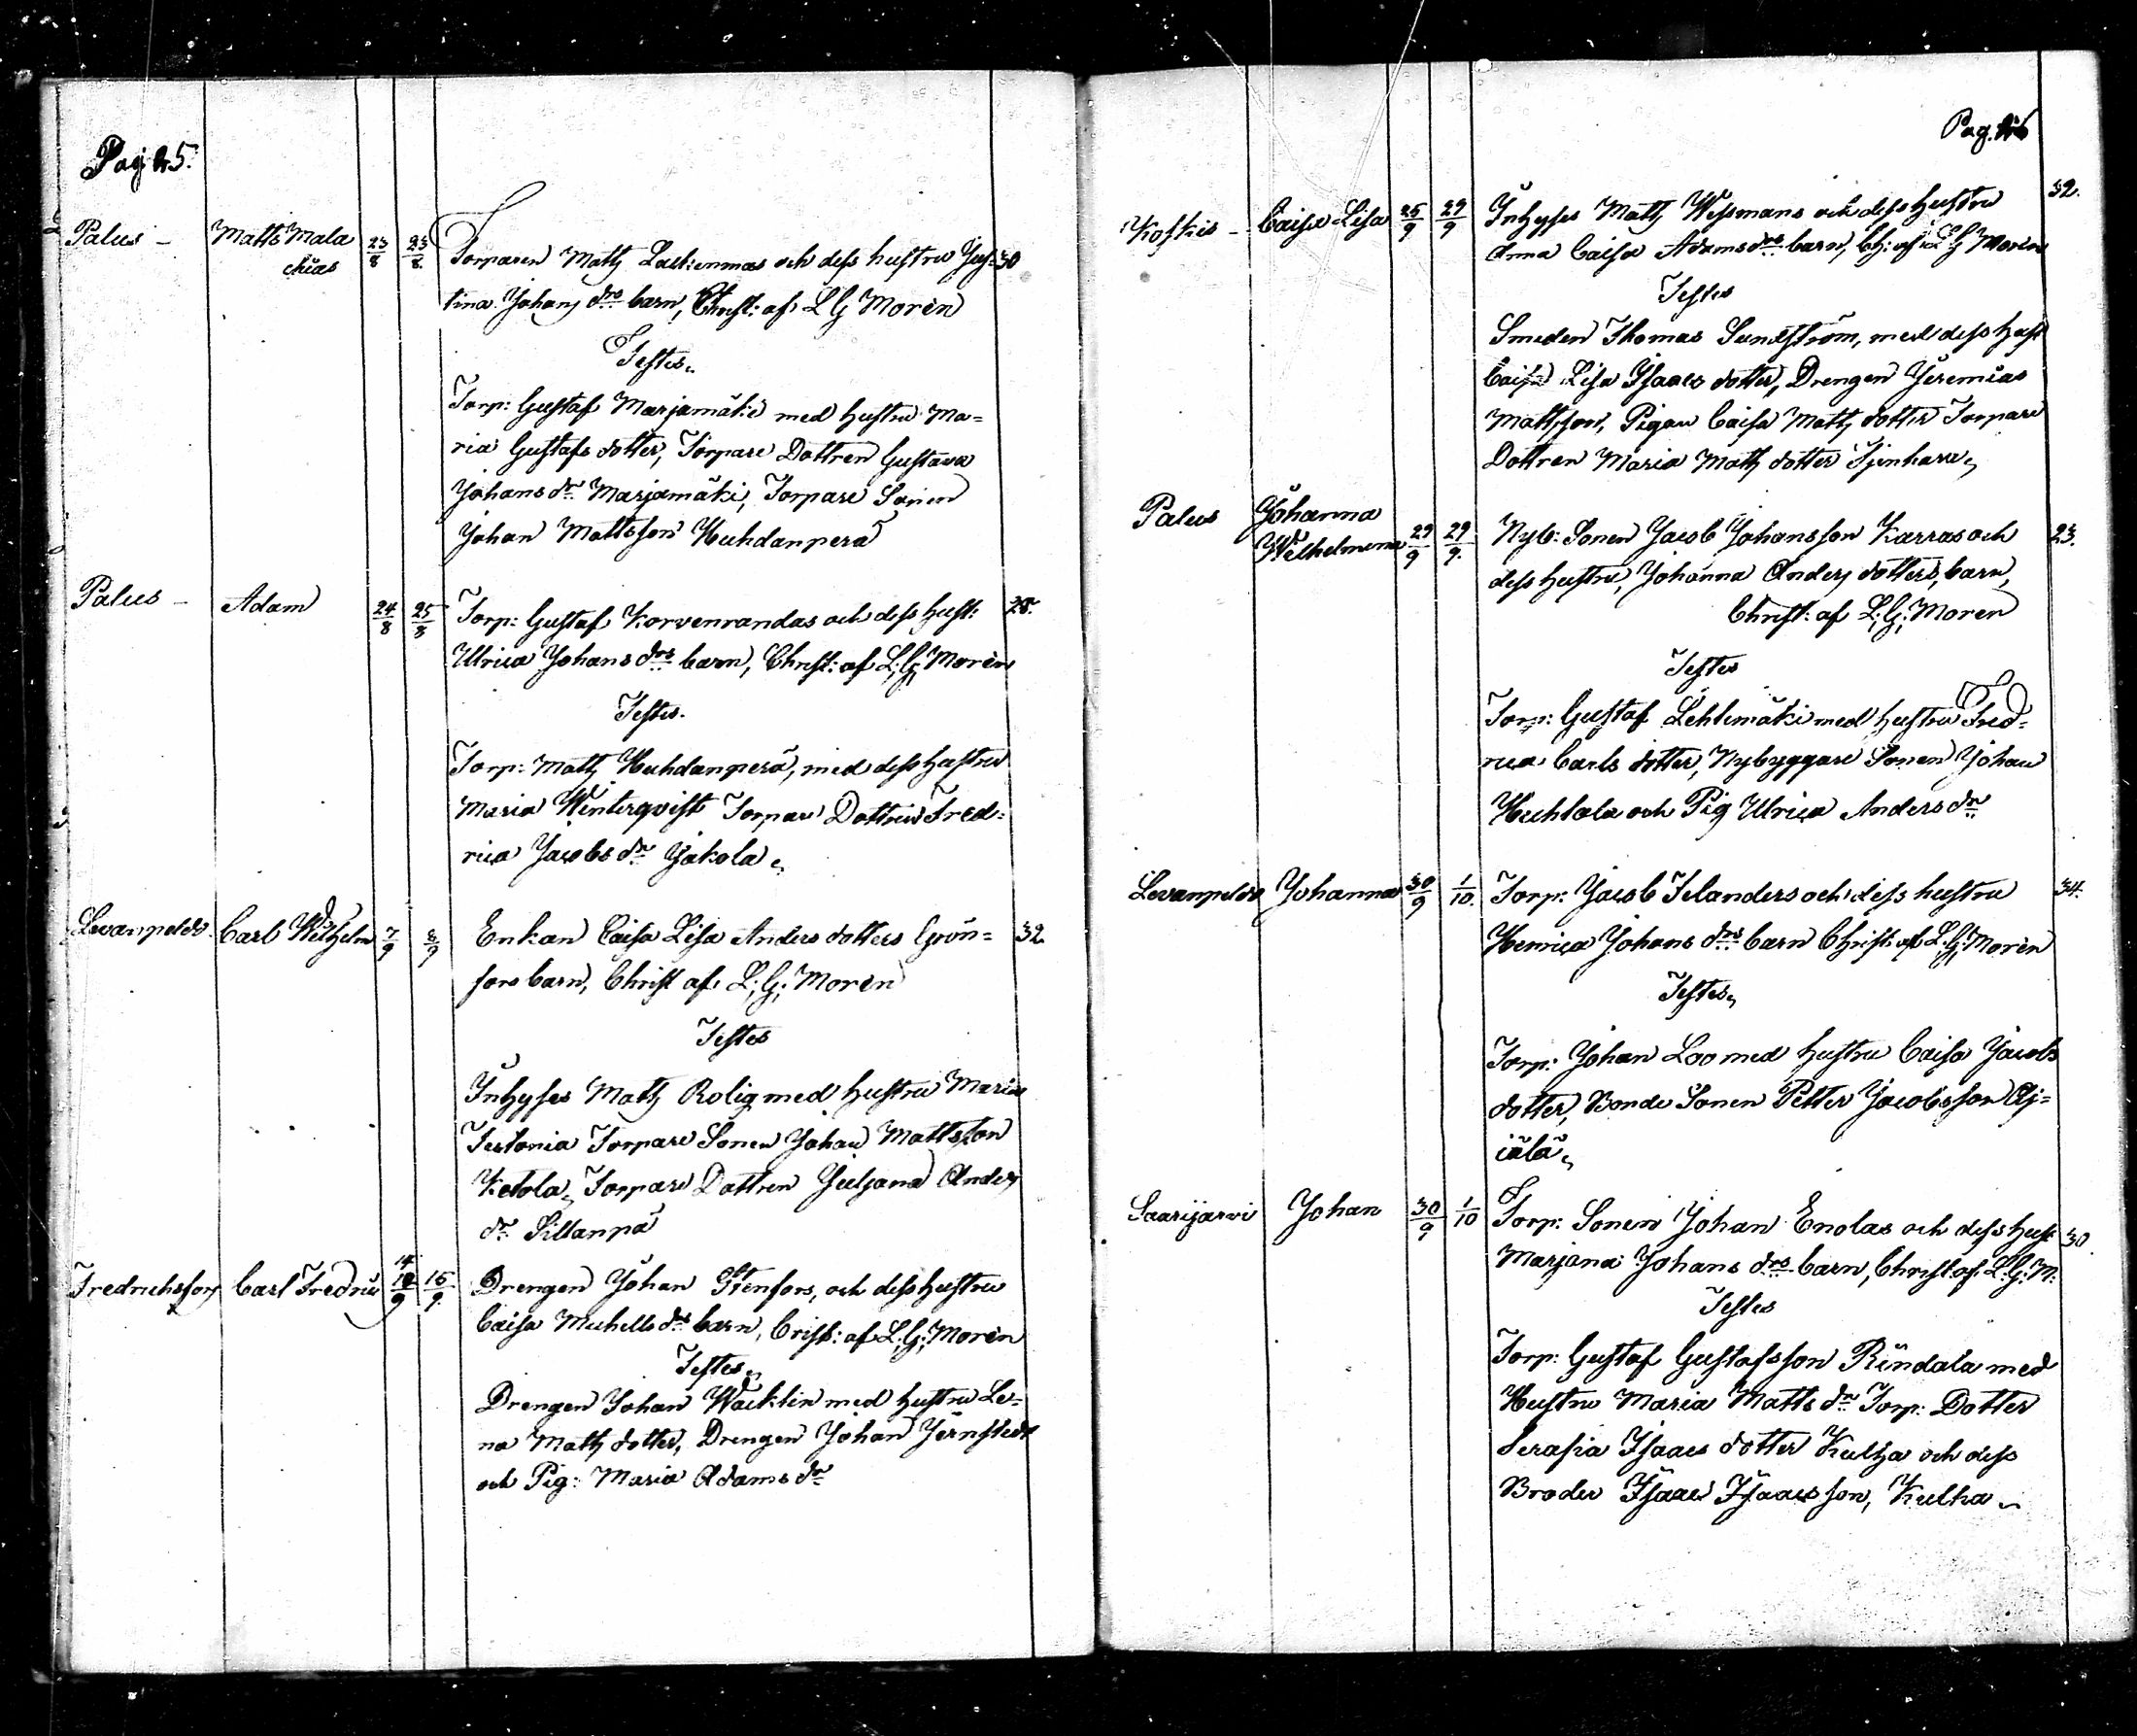 Pag 25.
Palus - Matts Mala
chias 23/8 23/8 Torparen Matts Lackenmas och dess hustru Jus= 30
tina Johans drs barn, Christ: af L G Morén
Testes.
Torp: Gustaf Marjamäki med hustru Ma=
ria Gustafs dotter, Torpare Dottren Gustava
Johans dr Marjamäki, Torpare Sonen
Johan Mattsson Huhdanperä
Palus - Adam 24/8 25/8 Torp: Gustaf Korvenrandas och dess hust: 28.
Ulrica Johans drs barn, Christ: af L: G: Morén
Testes.
Torp: Matts Huhdanperä, med dess hustru
Maria Winterqvist Torpare Dottren Fred=
rica Jacobs dr Jakola.
Levanpeldo Carl Wilhelm 7/9 8/9 Enkan Caisa Lisa Anders dotters Grön= 32
fors barn, Christ af L: G: Morén
Testes
Inhyses Matts Rolig med hustru Maria
Torpare Sonen Johan Mattsson
Ketola, Torpare Dottren Juljana Anders
dr Sillanpä
Fredrichsfors Carl Fredric 14/9 15/9 Drengen Johan Stenfors, och dess hustru
Caisa Michells drs barn, Crist: af L: G: Morén
Testes.
Drengen Johan Wacklin med hustru Le=
na Matts dotter, Drengen Johan Jernstedt
och Pig: Maria Adams dr
Pag. 26
Koskis - Caisa Lisa 25/9 29/9 Inhyses Matts Wessmans och dess hustru 32.
Anna Caisa Adams drs barn, Ch: af L G Morén
Testes
Smeden Thomas Sundström, med dess hust
Caisa Lisa Isaacs dotter, Drengen Jeremias
Mattsson, Pigan Caisa Matts dotter Torpare
Dottren Maria Matts dotter
Palus Johanna
Wilhelmina 29/9 29/9. Nyb: Sonen Jacob Johansson Karras och 23.
dess hustru, Johanna Anders dotters, barn,
Christ: af L: G: Moren
Testes
Torp: Gustaf Lehtimäki med hustru Fred=
rica Carls dotter, Nybyggare Sonen Johan
Huhtala och Pig Ulrica Anders dr
Levanpeldo Johanna 30/9 1/10. Torp: Jacob Selanders och dess hustru 34.
Henrica Johans drs barn Christ: af L: G: Morén
Testes,
Torp: Johan Loo med hustru Caisa Jacobs
dotter, Bonde Sonen Petter Jacobsson Äj=
jälä,
Saarijärvi Johan 30/9 1/10 Torp: Sonen Johan Enolas och dess hust 30.
Marjana Johans drs barn, Christ: af L: G: M:
Testes
Torp: Gustaf Gustafsson Rindala med
Hustru Maria Matts dr Torp: Dotter
Serafia Isaacs dotter Kulha och dess
Broder Isaac Isaacsson, Kulha